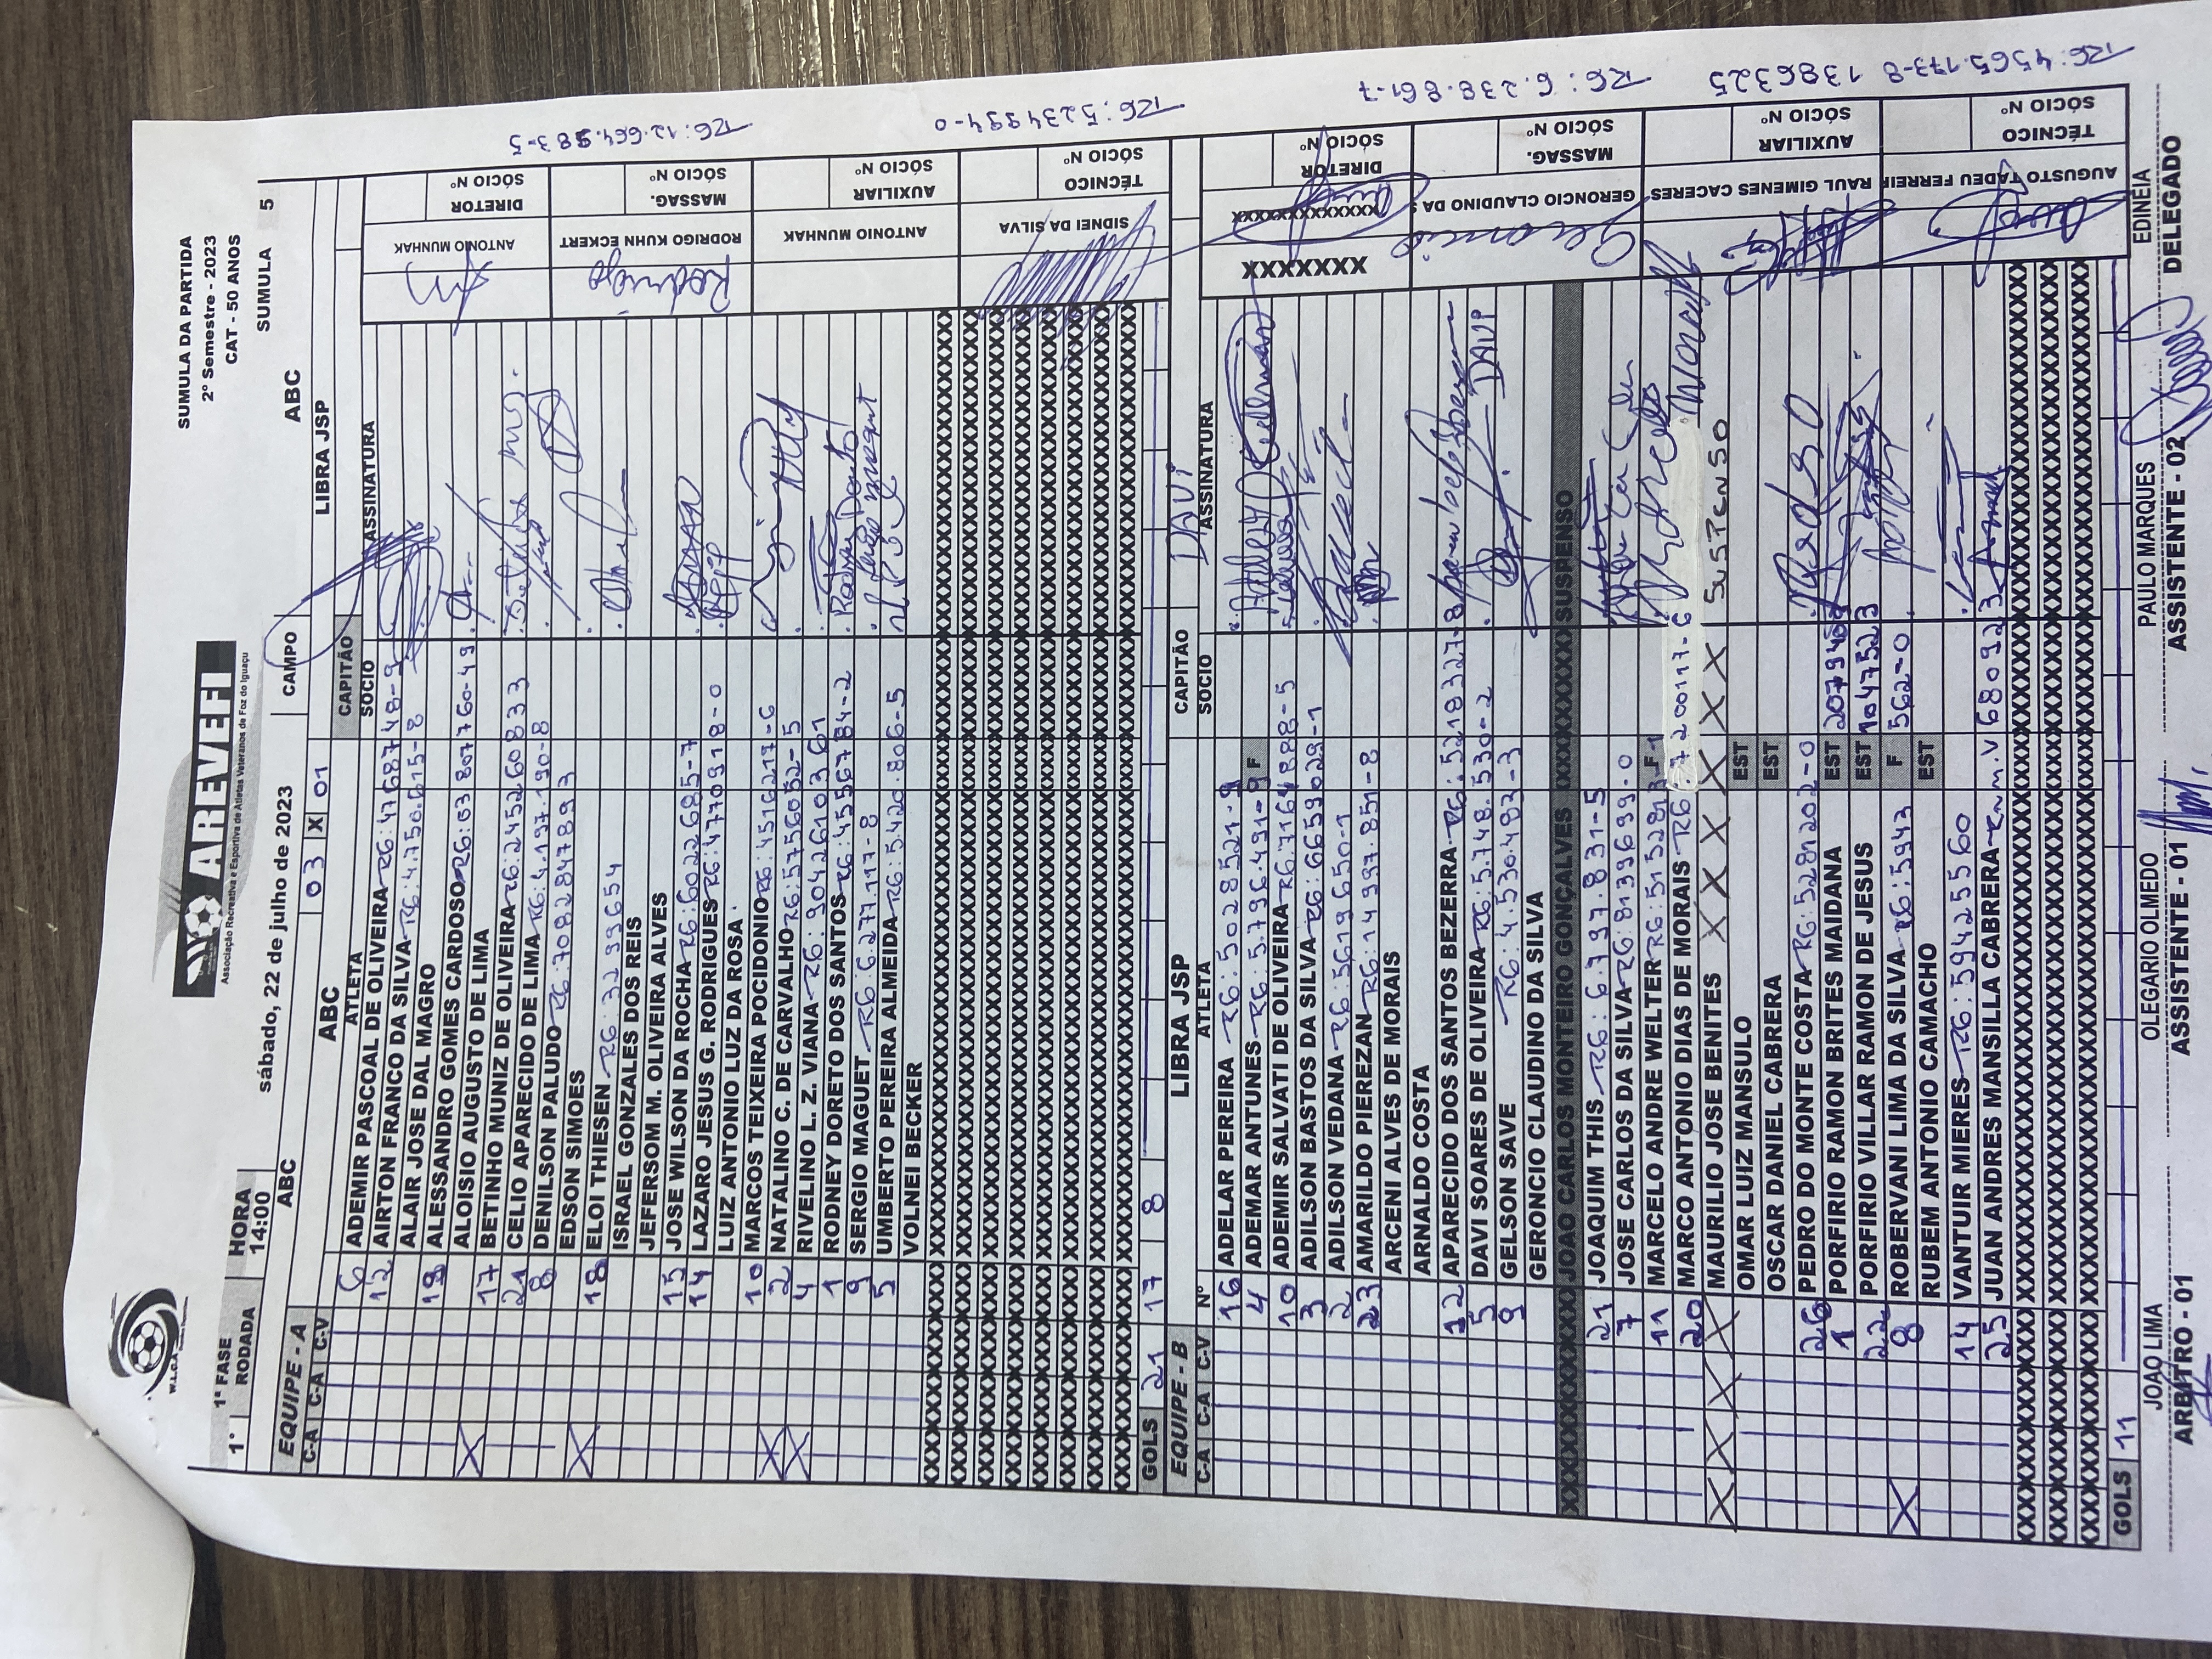 W.L.C.A
AREVEFI
Associação Recreativa e Esportiva de Atletas Veteranos de Foz do Iguaçu
SUMULA DA PARTIDA
2º Semestre - 2023
CAT - 50 ANOS
1ª FASE
1ª RODADA
HORA
14:00
sábado, 22 de julho de 2023
CAMPO
ABC
SUMULA 5
ABC 03 X 01 LIBRA JSP
EQUIPE - A ABC CAPITÃO
C-A C-A C-V ATLETA SOCIO ASSINATURA
6 ADEMIR PASCOAL DE OLIVEIRA RG: 4768748-9
12 AIRTON FRANCO DA SILVA RG: 4.750.615-8
ALAIR JOSE DAL MAGRO
18 ALESSANDRO GOMES CARDOSO RG: 63 807760-49
ALOISIO AUGUSTO DE LIMA
17 BETINHO MUNIZ DE OLIVEIRA RG: 245260833
21 CELIO APARECIDO DE LIMA RG: 4.197.190-8
8 DENILSON PALUDO RG: 7082847893
EDSON SIMOES
18 ELOI THIESEN RG: 3299654
ISRAEL GONZALES DOS REIS
JEFERSOM M. OLIVEIRA ALVES
15 JOSE WILSON DA ROCHA RG: 6022685-7
14 LAZARO JESUS G. RODRIGUES RG: 4770918-0
LUIZ ANTONIO LUZ DA ROSA
10 MARCOS TEIXEIRA POCIDONIO RG: 4516219-6
2 NATALINO C. DE CARVALHO RG: 5756052-5
4 RIVELINO L. Z. VIANA RG: 9042610361
1 RODNEY DORETO DOS SANTOS RG: 4556784-2
9 SERGIO MAGUET RG: 6.277.117-8
5 UMBERTO PEREIRA ALMEIDA RG: 5.420.806-5
VOLNEI BECKER
GOLS 21 17 8
ANTONIO MUNHAK DIRETOR SÓCIO Nº
RODRIGO KUHN ECKERT MASSAG. SÓCIO Nº
Rodrigo
RG: 12.664.983-5
ANTONIO MUNHAK AUXILIAR SÓCIO Nº
SIDNEI DA SILVA TÉCNICO SÓCIO Nº
RG: 5234994-0
EQUIPE - B LIBRA JSP CAPITÃO DAVI
C-A C-A C-V Nº ATLETA SOCIO ASSINATURA
16 ADELAR PEREIRA RG: 5028521-9
4 ADEMAR ANTUNES RG: 5.796.491-9 F
10 ADEMIR SALVATI DE OLIVEIRA RG: 71164888-5
3 ADILSON BASTOS DA SILVA RG: 6659029-1
2 ADILSON VEDANA RG: 5619650-1
23 AMARILDO PIEREZAN RG: 14997.851-8
ARCENI ALVES DE MORAIS
ARNALDO COSTA
12 APARECIDO DOS SANTOS BEZERRA RG: 5218327-8
5 DAVI SOARES DE OLIVEIRA RG: 5.748.530-2 DAVI
9 GELSON SAVE RG: 4.530.482-3
GERONCIO CLAUDINO DA SILVA
XXXXXXXXXXXX JOAO CARLOS MONTEIRO GONÇALVES XXXXXXXXXXX SUSPENSO
21 JOAQUIM THIS RG: 6.797.831-5
7 JOSE CARLOS DA SILVA RG: 8139699-0
11 MARCELO ANDRE WELTER RG: 5152813-1 Marcelo
20 MARCO ANTONIO DIAS DE MORAIS RG: 7200117-6
X X X X MAURILIO JOSE BENITES X X X X X X SUSPENSO
OMAR LUIZ MANSULO EST
OSCAR DANIEL CABRERA EST
26 PEDRO DO MONTE COSTA RG: 528120 2-0 Pedro
1 PORFIRIO RAMON BRITES MAIDANA EST
22 PORFIRIO VILLAR RAMON DE JESUS EST 1047523
8 ROBERVANI LIMA DA SILVA RG: 5943 F 562-0
RUBEM ANTONIO CAMACHO EST
14 VANTUIR MIERES RG: 59425560
25 JUAN ANDRES MANSILLA CABRERA R.n.m.V 680923
GOLS 11
XXXXXXX XXXXXXXXXXXXX DIRETOR SÓCIO Nº
GERONCIO CLAUDINO DA S MASSAG. SÓCIO Nº
Geroncio
RG: 6.238.861-7
RAUL GIMENES CACERES AUXILIAR SÓCIO Nº
1386325
AUGUSTO TADEU FERREIR TÉCNICO SÓCIO Nº
RG: 4565.173-8
JOAO LIMA
ARBITRO - 01
OLEGARIO OLMEDO
ASSISTENTE - 01
PAULO MARQUES
ASSISTENTE - 02
EDINEIA
DELEGADO